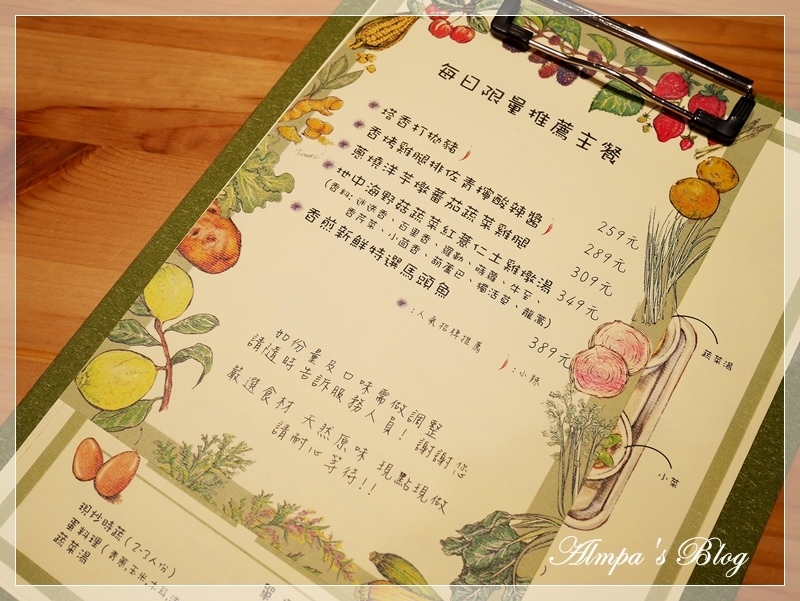 每日限量推薦主餐
塔香打拋豬 259元
香烤雞腿排佐青檸酸辣醬 289元
蔥燒洋芋燉蕃茄蔬菜雞腿 309元
地中海野菇蔬菜紅薏仁土雞燉湯 349元
(香料:迷迭香、百里香、羅勒、蒔蘿、牛至、
香芹菜、小茴香、葫蘆巴、獨活草、龍蒿)
香煎新鮮特選馬頭魚 389元
:人氣招牌推薦 :小辣
如份量及口味需做調整
請隨時告訴服務人員!謝謝您
嚴選食材 天然原味 現點現做
請耐心等待!!
蔬菜湯
小菜
現炒時蔬(2-3人份)
蛋料理(青蔥,玉米,木耳,
蔬菜湯
Almpa's Blog